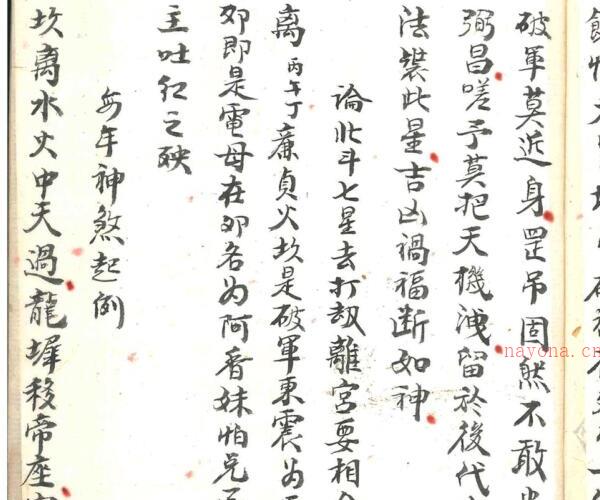 破軍莫近身罡吊固然不敢
弼昌嗟予莫把天機洩留於後代
法裝此星吉凶禍福断如神
論北斗七星去打刼離宮要相
离丙午丁廉貞火坎是破軍東震為
夘即是電母在夘名為阿香妹怕兑
主吐红之殃
年神煞起例
坎离水火中天過龍墀移帝座
nayona.cn